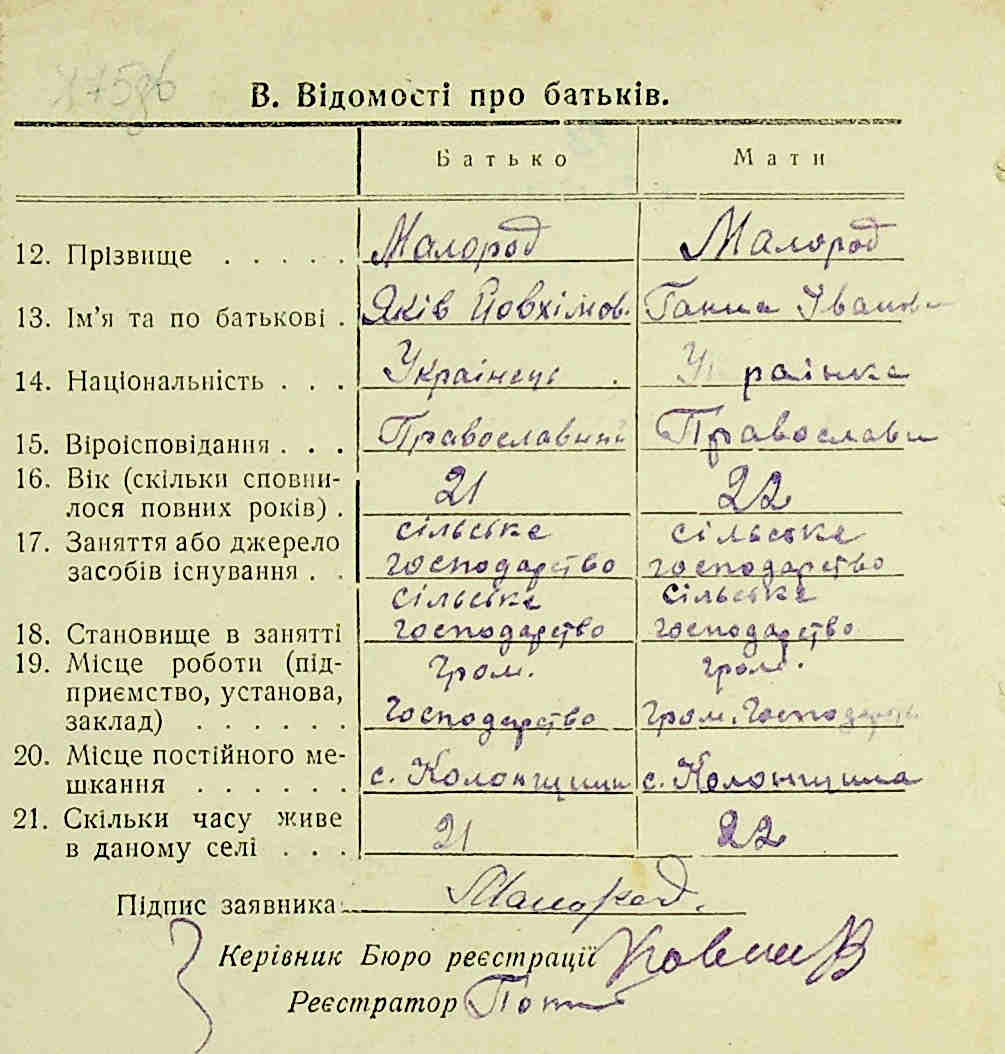 В. Відомості про батьків.
Батько Мати
12. Прізвище . . . . . Малород Малород
13. Ім'я та по батькові . Яків Йовхімов. Ганна Іванов
14. Національність . . . Українець . Українка
15. Віроісповідання . . . Православний Православн
16. Вік (скільки сповни-
лося повних років) . 21 22
17. Заняття або джерело сільське сільське
засобів існування . . господарство господарство
сільське сільське
18. Становище в занятті господарство господарство
19. Місце роботи (під- Гром. гром.
приємство, установа,
заклад) . . . . . . Господарство Гром. Господарств
20. Місце постійного ме-
шкання . . . . . . с. Колонщина с. Колонщина
21. Скільки часу живе
в даному селі . . . 21 22
Підпис заявника Малород.
Керівник Бюро реєстрації
Реєстратор